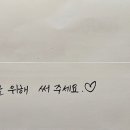 위해 써 주세요.♡